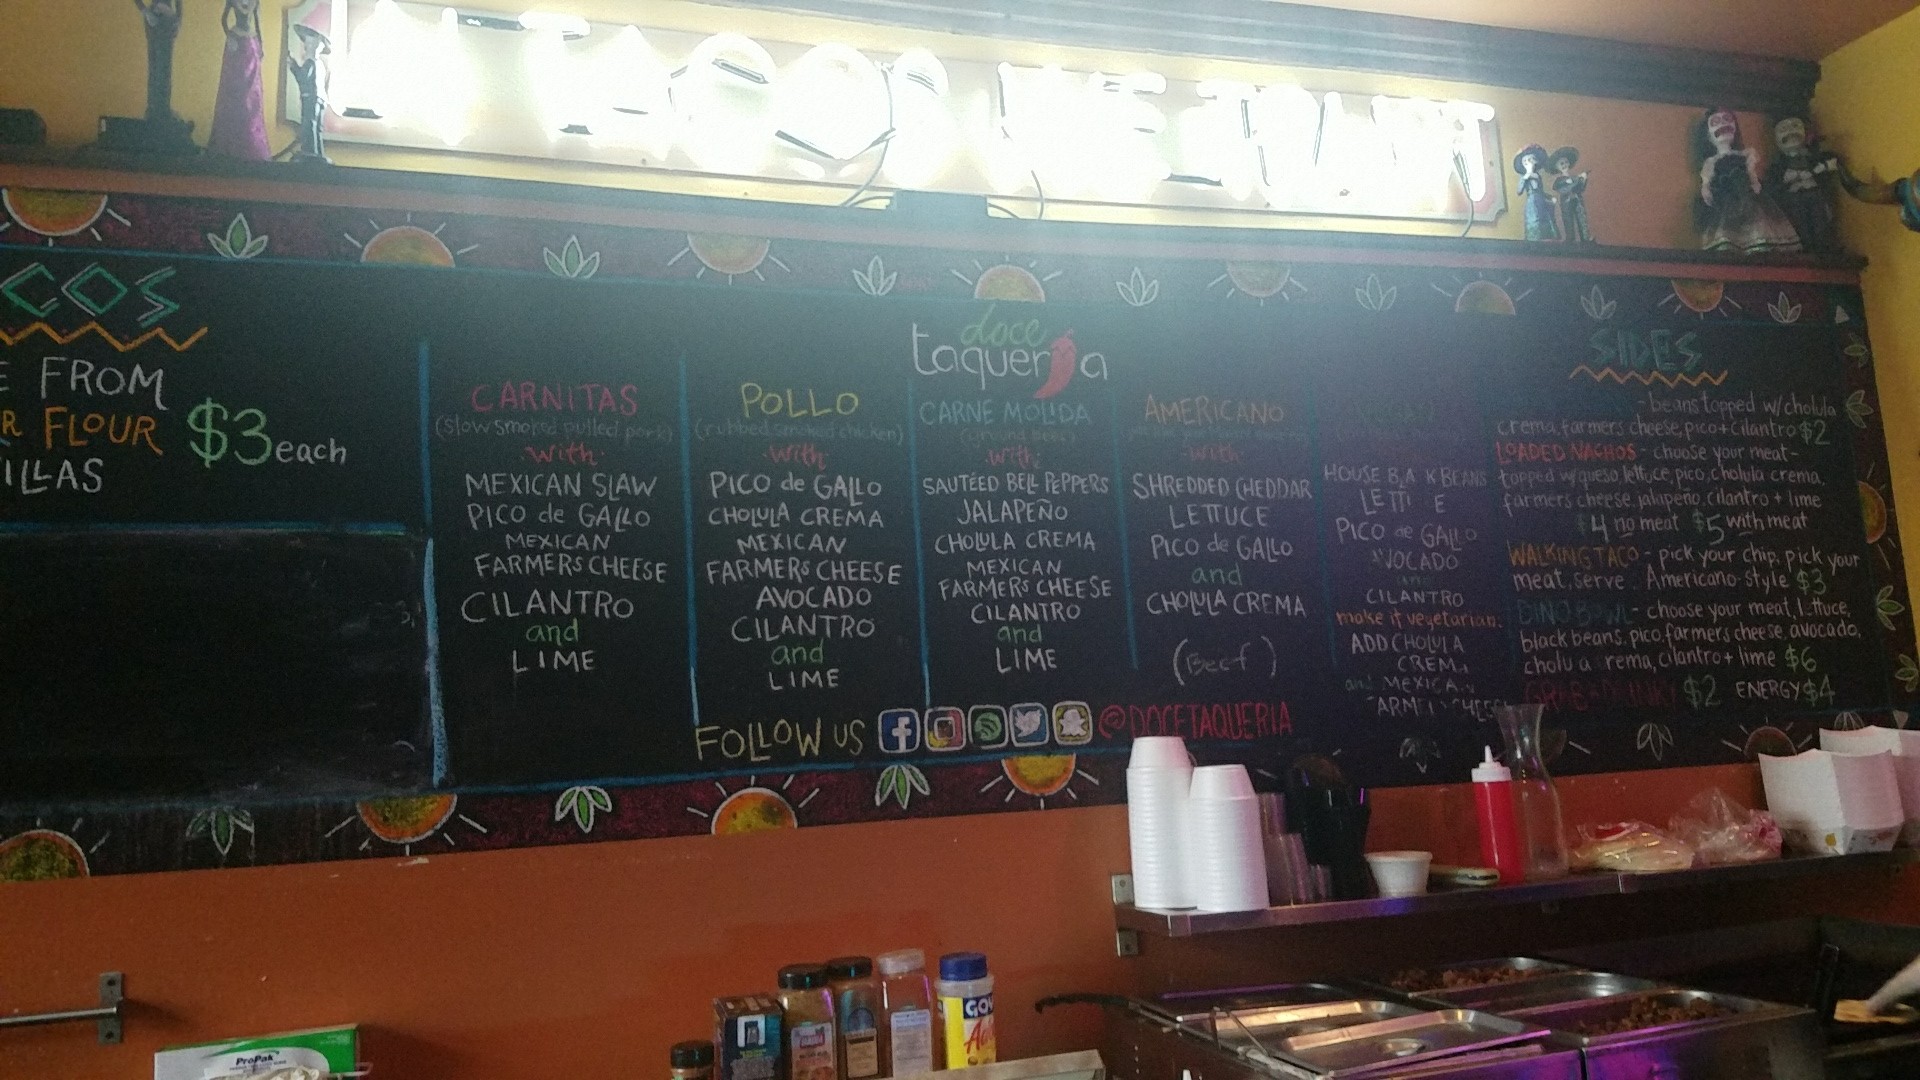 COS
E FROM
R FLOUR
ILLAS
$3 each
doce
taqueria
CARNITAS
(slow smoked pulled pork)
with
MEXICAN SLAW
PICO de GALLO
MEXICAN
FARMERS CHEESE
CILANTRO
and
LIME
POLLO
(rubbed smoked chicken)
with
PICO de GALLO
CHOLULA CREMA
MEXICAN
FARMERS CHEESE
AVOCADO
CILANTRO
and
LIME
CARNE MOLIDA
(ground beef)
with
SAUTÉED BELL PEPPERS
JALAPEÑO
CHOLULA CREMA
MEXICAN
FARMERS CHEESE
CILANTRO
and
LIME
AMERICANO
with
SHREDDED CHEDDAR
LETTUCE
PICO de GALLO
and
CHOLULA CREMA
(Beef)
HOUSE BLACK BEANS
LETTUCE
PICO de GALLO
AVOCADO
and
CILANTRO
make it vegetarian.
ADD CHOLULA
CREMA
and MEXICAN
FARMERS CHEESE
SIDES
- beans topped w/cholula
crema, farmers cheese, pico + cilantro $2
LOADED NACHOS - choose your meat -
topped w/queso lettuce, pico, cholula crema,
farmers cheese, jalapeño, cilantro + lime
$4 no meat $5 with meat
WALKING TACO - pick your chip, pick your
meat, serve Americano-style $3
DINO BOWL - choose your meat, lettuce,
black beans, pico, farmers cheese, avocado,
cholula crema, cilantro + lime $6
GRAB A DRINK! $2 ENERGY $4
FOLLOW US @DOCETAQUERIA
ProPak
GOYA
Adobo